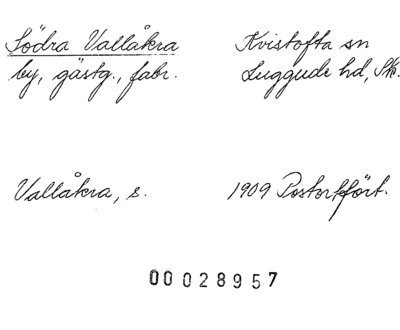 Södra Vallåkra
by, gästg., fabr.
Kvistofta sn
Luggude hd, Sk.
Vallåkra, s.
1909 Postortfört.
00028957